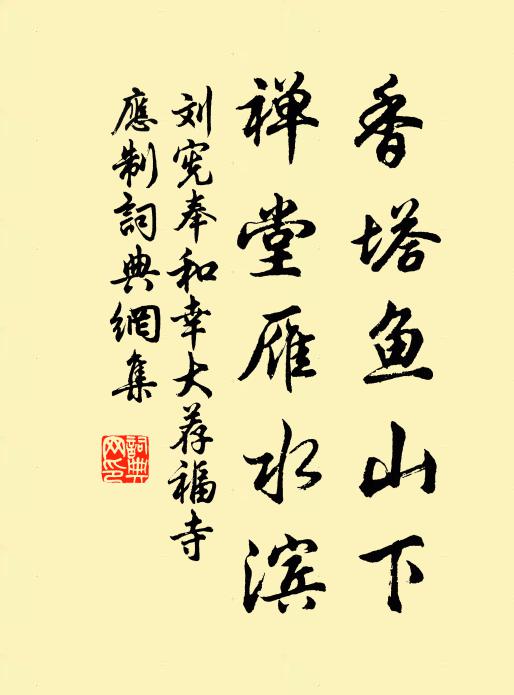 香塔鱼山下
禅堂雁水滨
刘宪奉和幸大荐福寺
應制詞典網集
詞典网印